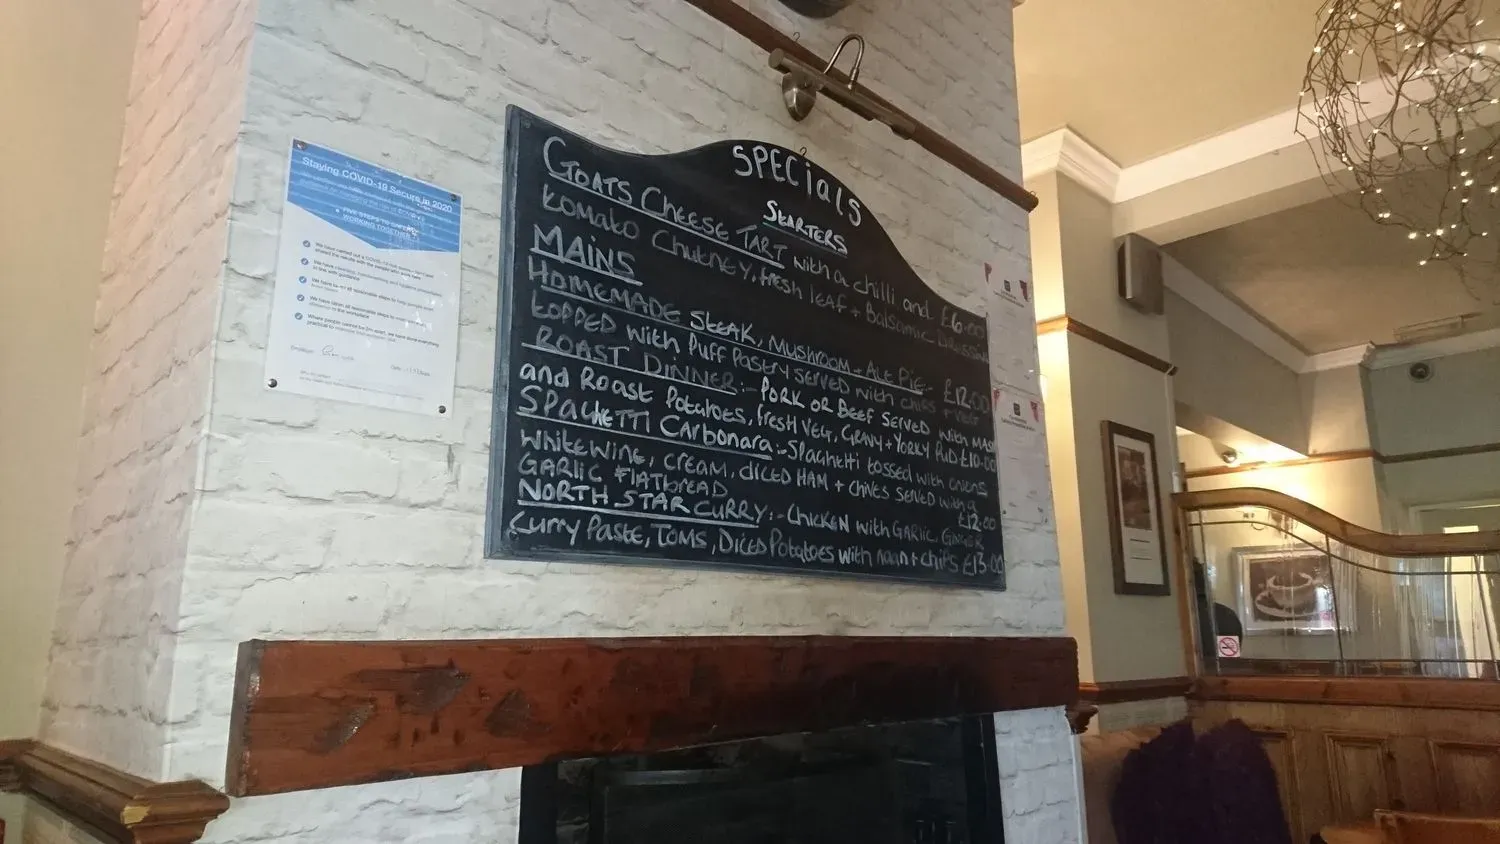 SPECIALS
STARTERS
GOATS CHEESE TART with a chilli and
tomato Chutney, fresh leaf + Balsamic Dressing £6.00
MAINS
HOMEMADE STEAK, MUSHROOM + ALE PIE:-
topped with Puff Pastry served with chips + veg £12.00
ROAST DINNER:- PORK OR BEEF SERVED with MASH
and Roast Potatoes, fresh veg, GRAVY + YORKY PUD £10.00
SPAGHETTI CARBONARA:- SPAGHETTI tossed with onions
white wine, cream, diced HAM + chives served with a
GARLIC FLATBREAD £12.00
NORTH STAR CURRY:- CHICKEN with GARLIC, GINGER
Curry Paste, Toms, Diced Potatoes with naan + chips £13.00
Staying COVID-19 Secure in 2020
FIVE STEPS TO SAFER
WORKING TOGETHER
We have carried out a COVID-19 risk assessment and
shared the results with the people who work here
We have cleaning, handwashing and hygiene procedures
in line with guidance
We have taken all reasonable steps to help people work
from home
We have taken all reasonable steps to maintain a 2m
distance in the workplace
Where people cannot be 2m apart, we have done everything
practical to manage transmission risk
Employer
Date